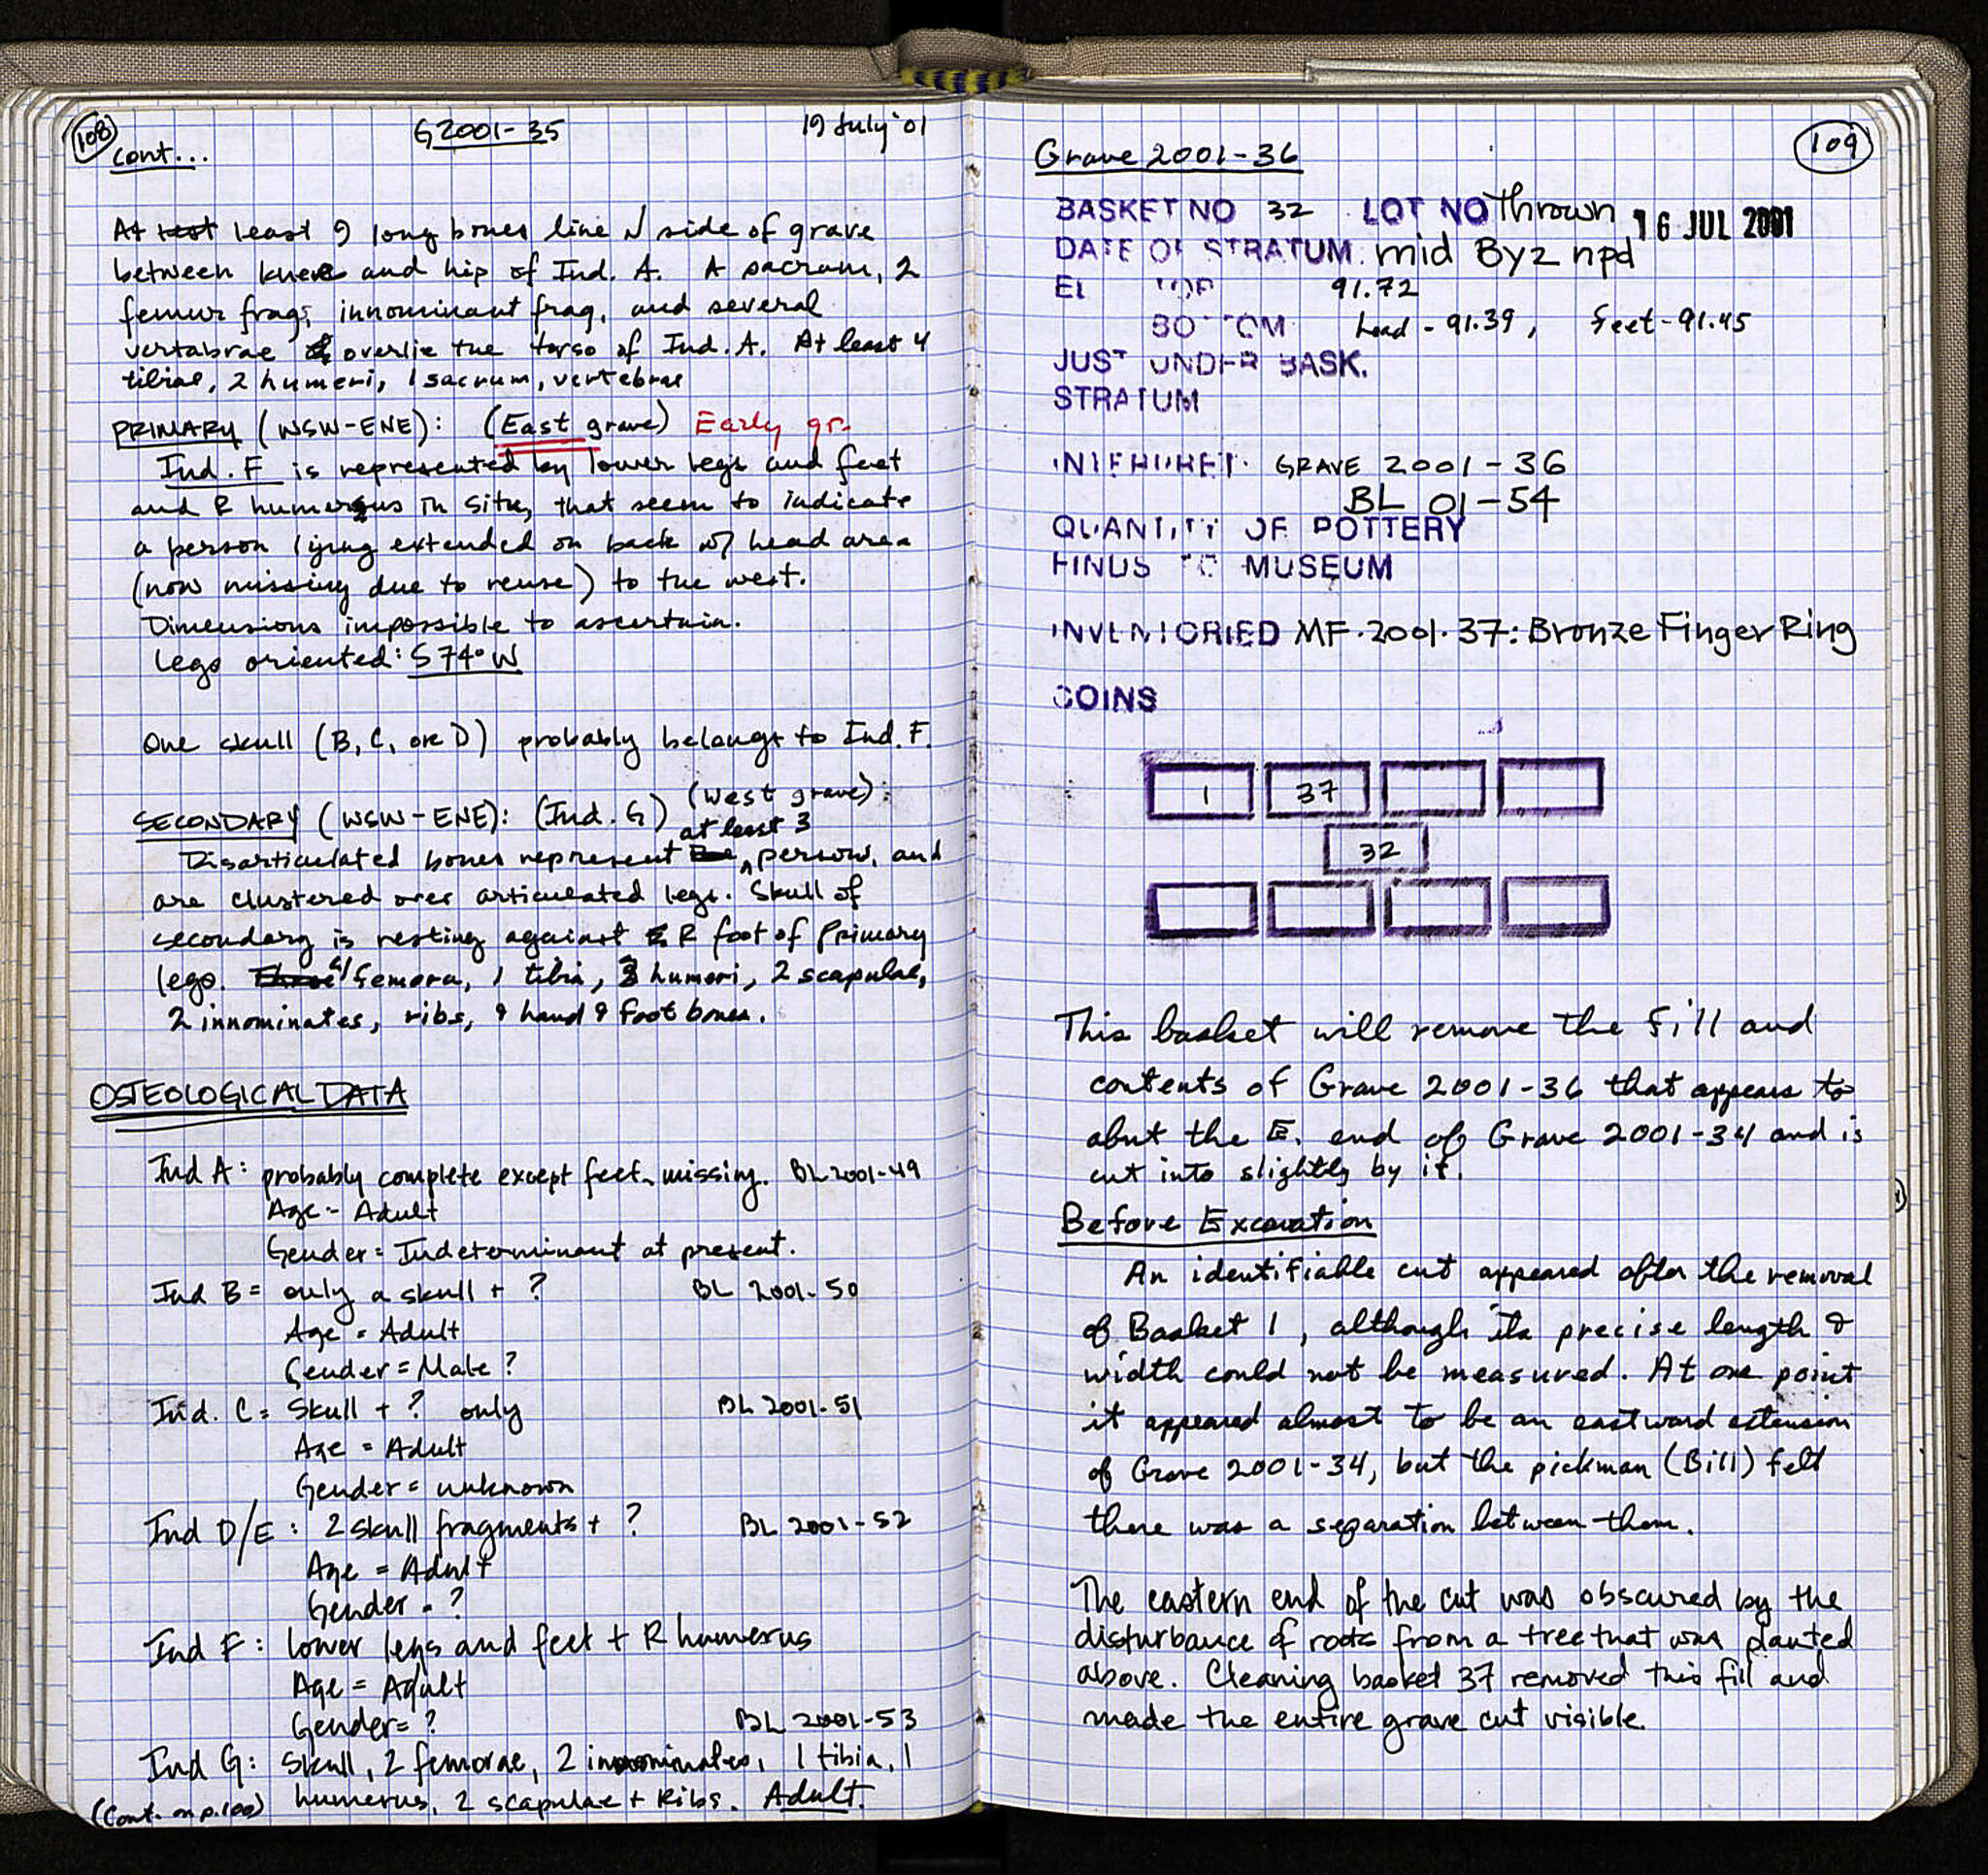 108
cont...
G2001-35
19 July '01
At least 9 long bones line N side of grave
between knees and hip of Ind. A. A sacrum, 2
femur frags, innominant frag, and several
vertabrae overlie the torso of Ind. A. At least 4
tibiae, 2 humeri, 1 sacrum, vertebrae
PRIMARY (WSW-ENE): (East grave) Early gr.
Ind. F is represented by lower legs and feet
and R humerus in situ, that seem to indicate
a person lying extended on back w/ head area
(now missing due to reuse) to the west.
Dimensions impossible to ascertain.
legs oriented: S74°W
One skull (B, C, or D) probably belongs to Ind. F.
SECONDARY (WSW-ENE): (Ind. G) (West grave):
at least 3
Disarticulated bones represent persons, and
are clustered over articulated legs. Skull of
secondary is resting against R foot of Primary
legs. 4 femora, 1 tibia, 3 humeri, 2 scapulae,
2 innominates, ribs, & hand & foot bones.
OSTEOLOGICAL DATA
Ind A: probably complete except feet missing. BL 2001-49
Age - Adult
Gender = Indeterminant at present.
Ind B = only a skull + ? BL 2001-50
Age = Adult
Gender = Male?
Ind. C = Skull + ? only BL 2001-51
Age = Adult
Gender = unknown
Ind D/E: 2 skull fragments + ? BL 2001-52
Age = Adult
Gender = ?
Ind F: lower legs and feet + R humerus
Age = Adult
Gender = ? BL 2001-53
Ind G: Skull, 2 femorae, 2 innominates, 1 tibia, 1
(Cont. on p.100) humerus, 2 scapulae + Ribs. Adult.
109
Grave 2001-36
BASKET NO 32 LOT NO Thrown 16 JUL 2001
DATE OF STRATUM: mid Byz npd
EL TOP 91.72
BOTTOM head - 91.39, feet - 91.45
JUST UNDER BASK.
STRATUM
INTERPRET. GRAVE 2001-36
BL 01-54
QUANTITY OF POTTERY
FINDS TO MUSEUM
INVENTORIED MF.2001.37: Bronze Finger Ring
COINS
1 37
32
This basket will remove the fill and
contents of Grave 2001-36 that appears to
abut the E. end of Grave 2001-34 and is
cut into slightly by it.
Before Excavation
An identifiable cut appeared after the removal
of Basket 1, although its precise length &
width could not be measured. At one point
it appeared almost to be an eastward extension
of Grave 2001-34, but the pickman (Bill) felt
there was a separation between them.
The eastern end of the cut was obscured by the
disturbance of roots from a tree that was planted
above. Cleaning basket 37 removed this fill and
made the entire grave cut visible.